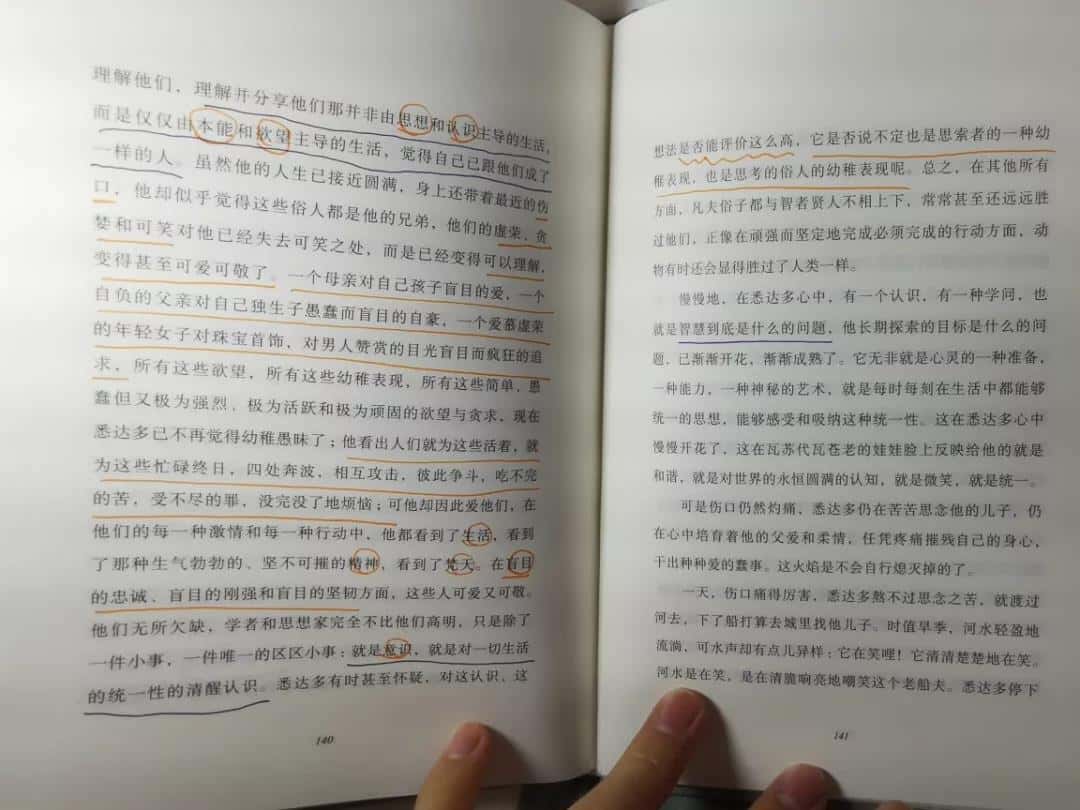 理解他们，理解并分享他们那并非由思想和认识主导的生活，
而是仅仅由本能和欲望主导的生活，觉得自己已跟他们成了
一样的人。虽然他的人生已接近圆满，身上还带着最近的伤
口，他却似乎觉得这些俗人都是他的兄弟，他们的虚荣、贪
婪和可笑对他已经失去可笑之处，而是已经变得可以理解，
变得甚至可爱可敬了。一个母亲对自己孩子盲目的爱，一个
自负的父亲对自己独生子愚蠢而盲目的自豪，一个爱慕虚荣
的年轻女子对珠宝首饰，对男人赞赏的目光盲目而疯狂的追
求，所有这些欲望，所有这些幼稚表现，所有这些简单、愚
蠢但又极为强烈、极为活跃和极为顽固的欲望与贪求，现在
悉达多已不再觉得幼稚愚昧了；他看出人们就为这些活着，就
为这些忙碌终日，四处奔波，相互攻击，彼此争斗，吃不完
的苦，受不尽的罪，没完没了地烦恼；可他却因此爱他们，在
他们的每一种激情和每一种行动中，他都看到了生活，看到
了那种生气勃勃的、坚不可摧的精神，看到了梵天。在盲目
的忠诚、盲目的刚强和盲目的坚韧方面，这些人可爱又可敬。
他们无所欠缺，学者和思想家完全不比他们高明，只是除了
一件小事，一件唯一的区区小事：就是意识，就是对一切生活
的统一性的清醒认识。悉达多有时甚至怀疑，对这认识、这
140
想法是否能评价这么高，它是否说不定也是思索者的一种幼
稚表现，也是思考的俗人的幼稚表现呢。总之，在其他所有
方面，凡夫俗子都与智者贤人不相上下，常常甚至还远远胜
过他们，正像在顽强而坚定地完成必须完成的行动方面，动
物有时还会显得胜过了人类一样。
慢慢地，在悉达多心中，有一个认识，有一种学问，也
就是智慧到底是什么的问题，他长期探索的目标是什么的问
题，已渐渐开花，渐渐成熟了。它无非就是心灵的一种准备，
一种能力，一种神秘的艺术，就是每时每刻在生活中都能够
统一的思想，能够感受和吸纳这种统一性。这在悉达多心中
慢慢开花了，这在瓦苏代瓦苍老的娃娃脸上反映给他的就是
和谐，就是对世界的永恒圆满的认知，就是微笑，就是统一。
可是伤口仍然灼痛，悉达多仍在苦苦思念他的儿子，仍
在心中培育着他的父爱和柔情，任凭疼痛摧残自己的身心，
干出种种爱的蠢事。这火焰是不会自行熄灭掉的了。
一天，伤口痛得厉害，悉达多熬不过思念之苦，就渡过
河去，下了船打算去城里找他儿子。时值旱季，河水轻盈地
流淌，可水声却有点儿异样：它在笑哩！它清清楚楚地在笑。
河水是在笑，是在清脆响亮地嘲笑这个老船夫。悉达多停下
141